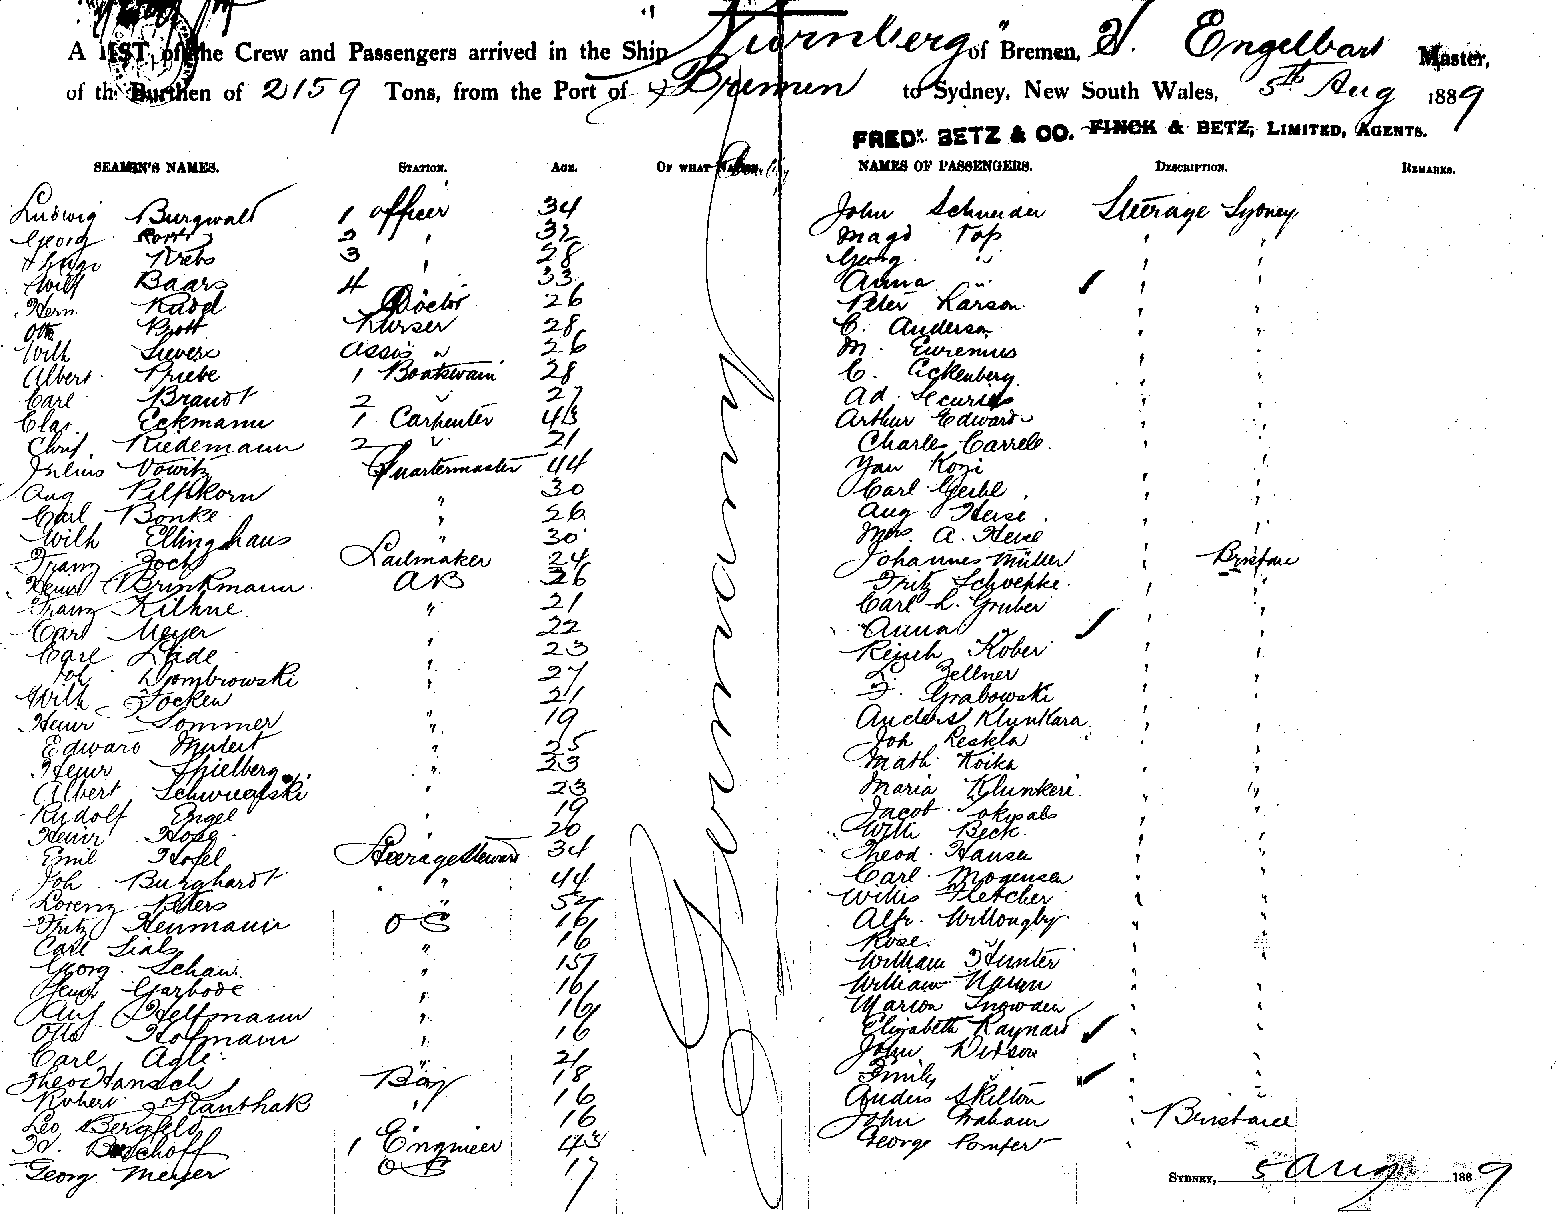 A LIST of the Crew and Passengers arrived in the Ship "Nürnberg" of Bremen, H. Engelbart Master,
of the Burthen of 2159 Tons, from the Port of Bremen to Sydney, New South Wales, 5th Aug 1889
FREDK. BETZ & CO. FINCK & BETZ, LIMITED, AGENTS.
SEAMEN'S NAMES. STATION. AGE. OF WHAT NATION. NAMES OF PASSENGERS. DESCRIPTION. REMARKS.
Germany
Ludwig Burgwald 1 officer 34 John Schneider Steerage Sydney
Georg 2 " 32 Magd Top " "
Krebs 3 " 28 Georg " " "
Wilh Baars 4 33 Anna " " "
Herm. Doctor 26 Peter Larson " "
Otto Brott Purser 28 C. Anderson " "
Wilh Sievers Assis " 26 M. Eurenius " "
Albert Priebe 1 Boatswain 28 C. Eckenberg " "
Carl Brandt 2 " 27 Ad. " "
Clas Eckmann 1 Carpenter 43 Arthur Edwards " "
Christ. Riedemann 2 " 21 Charles Carrell " "
Julius Quartermaster 44 Yan Kozi " "
Aug 30 Carl Geibel " "
Carl Bonke " 26 Aug Heise " "
Wilh Ellinghaus " 30 Mrs. A. Heise " "
Franz Zoch Sailmaker 24 Johannes Müller " Brisbane
Heinr Brinkmann AB 26 Fritz Schwepke " "
Franz Kilhne " 21 Carl L. Gruber " "
Carl Meyer " 22 Anna " " "
Carl Lüde " 23 Kober " "
Joh Dombrowski " 27 L. Zellner " "
Wilh Focken " 21 F. Grabowski " "
Heinr Sommer " 19 Anders Klunkara " "
Edward Mutert " 25 Joh Keskla " "
Heinr Spielberg " 23 Math Koika " "
Albert " 23 Maria Klunkeri " "
Rudolf Engel " 19 Jacob " "
Heinr Hope " 20 Willi Beck " "
Emil Hofel Steerage Steward 34 Theod. Hansen " "
Joh Burghardt " 44 Carl Mogensen " "
Lorenz Peters " 52 Willis Fletcher " "
Fritz Heumann OS 16 Alfr. Willougby " "
Carl " 16 Rose " " "
Georg Schau " 15 William Hunter " "
Heinr Garbode " 16 William " "
Aug Helfmann " 16 Marion Snowden " "
Otto Hofmann " 16 Elizabeth Raynard " "
Carl Agle " 21 John " "
Theo Hansch Boy 18 Emily " " "
Robert " 16 Anders Skilton " "
Leo Bergfeld 16 John Graham " Brisbane
Fd. Bischoff 1 Engineer 43 George "
Georg Meyer OS 17
SYDNEY, 5 Aug 1889